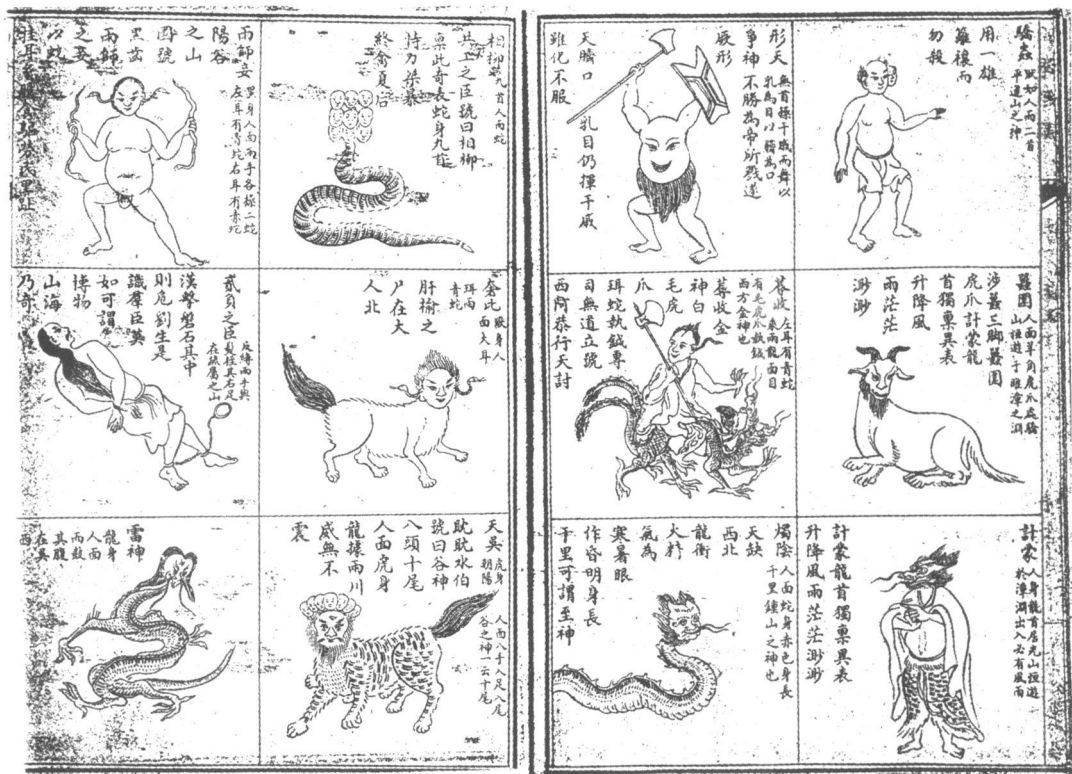 驕蟲
狀如人而二首
平逢山之神
用一雄
雞禳而
勿殺
形天
無首操干戚而舞以
乳為目以臍為口
爭神不勝為帝所戮遂
厥形
天臍口
乳目仍揮干戚
雖化不服
人面羊角虎爪
山恒遊于睢漳之淵
涉䵳三脚䵳圍
虎爪計蒙龍
首獨稟異表
升降風
雨茫茫
渺渺
蓐收
左耳有青蛇
乘兩龍面目
有毛虎爪執鉞
西方金神也
蓐收金
神白
毛虎
爪
珥蛇執鉞專
司無道立號
西阿恭行天討
計蒙
人身龍首居光山恒遊
於漳淵出入必有風雨
計蒙龍首獨稟異表
升降風雨茫茫渺渺
燭陰
人面蛇身赤色身長
千里鍾山之神也
天缺
西北
龍銜
火精
氣為
寒暑眼
作昏明身長
千里可謂至神
相柳
九首人面蛇
共工之臣號曰相柳
稟此奇表蛇身九首
恃力桀暴
終禽夏后
雨師妾
黑身人面兩手各操一蛇
左耳有青蛇右耳有赤蛇
陽谷
之山
國號
黑齒
雨師
之妾
以蛇
奢比
獸身人
面大耳
珥兩
青蛇
肝榆之
尸在大
人北
貳負之臣
反縛兩手與
髮桎其右足
在疏屬之山
漢擊磐石其中
則危劉生是
識羣臣莫
如可謂
博物
山海
乃奇
天吳
虎身
朝陽
人面八手八足八尾
谷之神一云十尾
眈眈水伯
號曰谷神
八頭十尾
人面虎身
龍據兩川
威無不
震
雷神
龍身
人面
而鼓
其腹
在吳
西